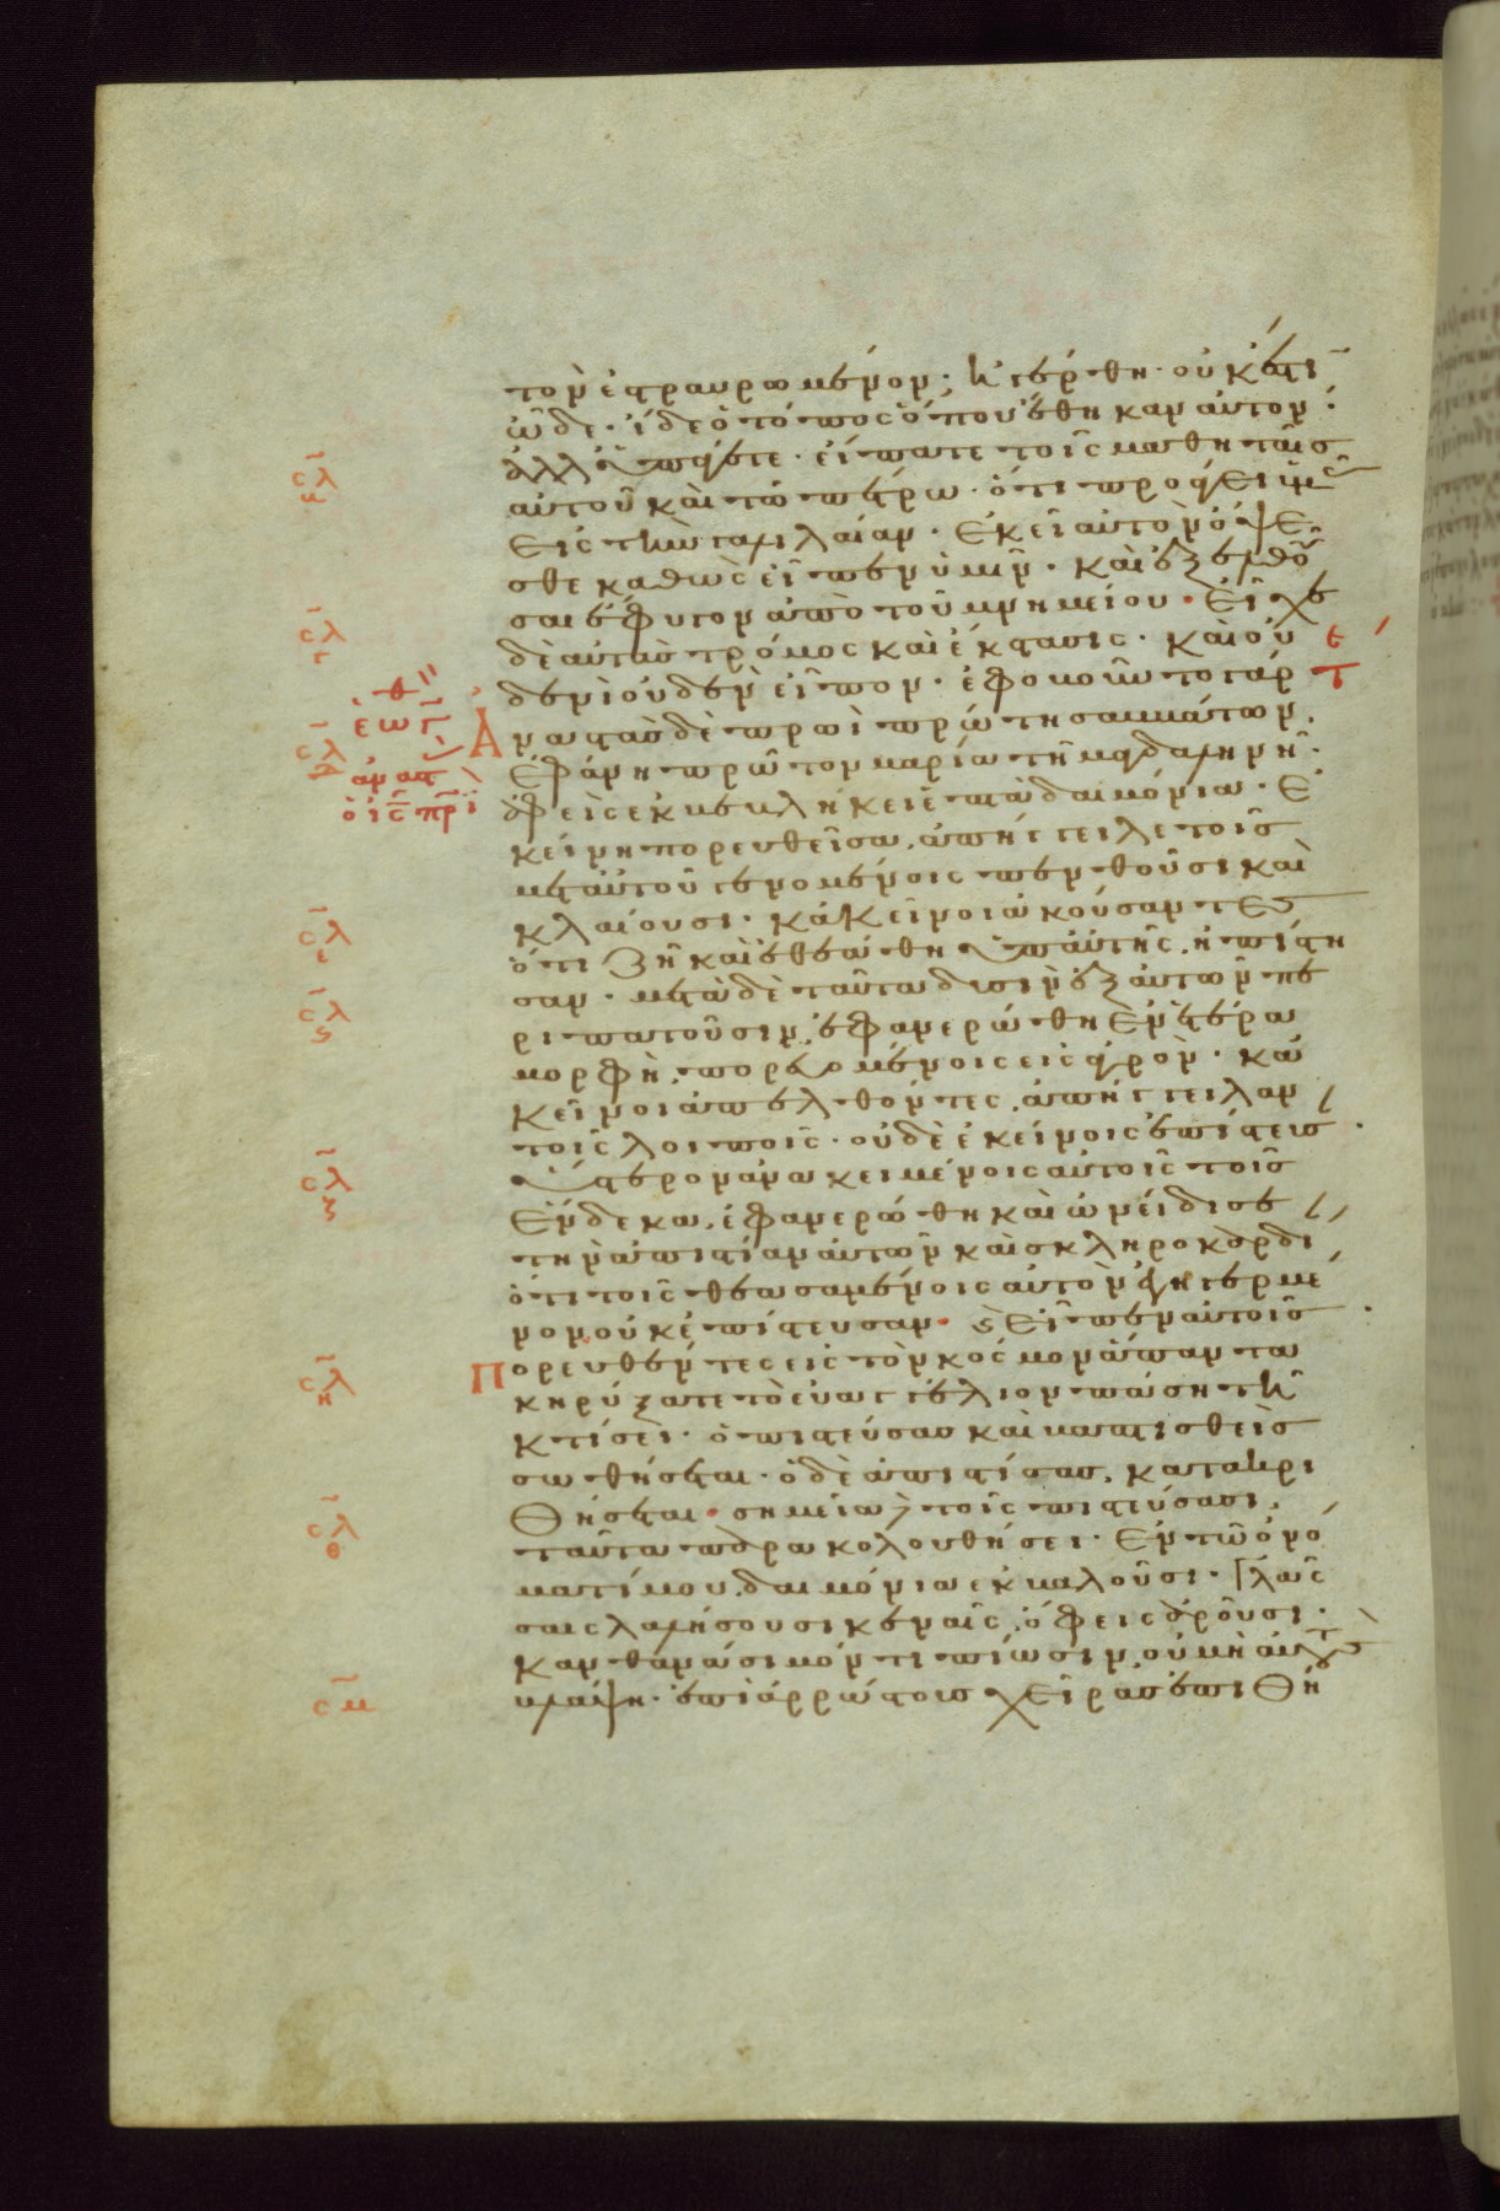 τὸν ἐσταυρωμένον· ἠγέρθη· οὐκ ἔστιν
ὧδε· ἴδε ὁ τόπος ὅπου ἔθηκαν αὐτόν·
σλδ ἀλλ' ὑπάγετε· εἴπατε τοῖς μαθηταῖς
αὐτοῦ καὶ τῶ πέτρω· ὅτι προάγει ὑμᾶς
εἰς τὴν γαλιλαίαν· ἐκεῖ αὐτὸν ὄψε
σθε καθὼς εἶπεν ὑμῖν· καὶ ἐξελθοῦ
σαι ἔφυγον ἀπὸ τοῦ μνημείου· εἶχε
σλγ δὲ αὐτὰς τρόμος καὶ ἔκστασις· καὶ οὐ
δενὶ οὐδὲν εἶπον· ἐφοβοῦντο γάρ τ
ἑωθ γ ἀναστὰς δὲ πρωῒ πρώτη σαββάτων,
σλδ ἐφάνη πρῶτον μαρία τῆ μαγδαληνῆ·
ἀφ' εἧς ἐκβεβλήκει ἑπτὰ δαιμόνια· ἐ
κείνη πορευθεῖσα, ἀπήγγειλε τοῖς
μετ' αὐτοῦ γενομένοις πενθοῦσι καὶ
σλε κλαίουσι· κἀκεῖνοι ἀκούσαντες
ὅτι ζῆ καὶ ἐθεάθη ὑπ' αὐτῆς, ἠπίστη
σλς σαν· μετὰ δὲ ταῦτα δυσὶν ἐξ αὐτῶν πε
ριπατοῦσιν, ἐφανερώθη ἐν ἑτέρα
μορφῆ, πορευομένοις εἰς ἀγρόν· κἀ
κεῖνοι ἀπελθόντες, ἀπήγγειλαν
τοῖς λοιποῖς· οὐδὲ ἐκείνοις ἐπίστευσ·
σλζ ὕστερον ἀνακειμένοις αὐτοῖς τοῖς
ἕνδεκα, ἐφανερώθη καὶ ὠνείδισε
τὴν ἀπιστίαν αὐτῶν καὶ σκληροκαρδι
ὅτι τοῖς θεασαμένοις αὐτὸν ἐγηγερμέ
νον οὐκ ἐπίστευσαν· καὶ εἶπεν αὐτοῖς·
σλη πορευθέντες εἰς τὸν κόσμον ἅπαντα
κηρύξατε τὸ εὐαγγέλιον πάση τῆ
κτίσει· ὁ πιστεύσας καὶ βαπτισθεὶς
σωθήσεται· ὁ δὲ ἀπιστήσας, κατακρι
θήσεται· σημεῖα δὲ τοῖς πιστεύσασι,
σλθ ταῦτα παρακολουθήσει· ἐν τῶ ὀνό
ματί μου, δαιμόνια ἐκβαλοῦσι· γλώσ
σαις λαλήσουσι καιναῖς, ὄφεις ἀροῦσι·
κἂν θανάσιμόν τι πίωσιν, οὐ μὴ αὐτοὺς
σμ βλάψη· ἐπὶ ἀρρώστους χεῖρας ἐπιθή